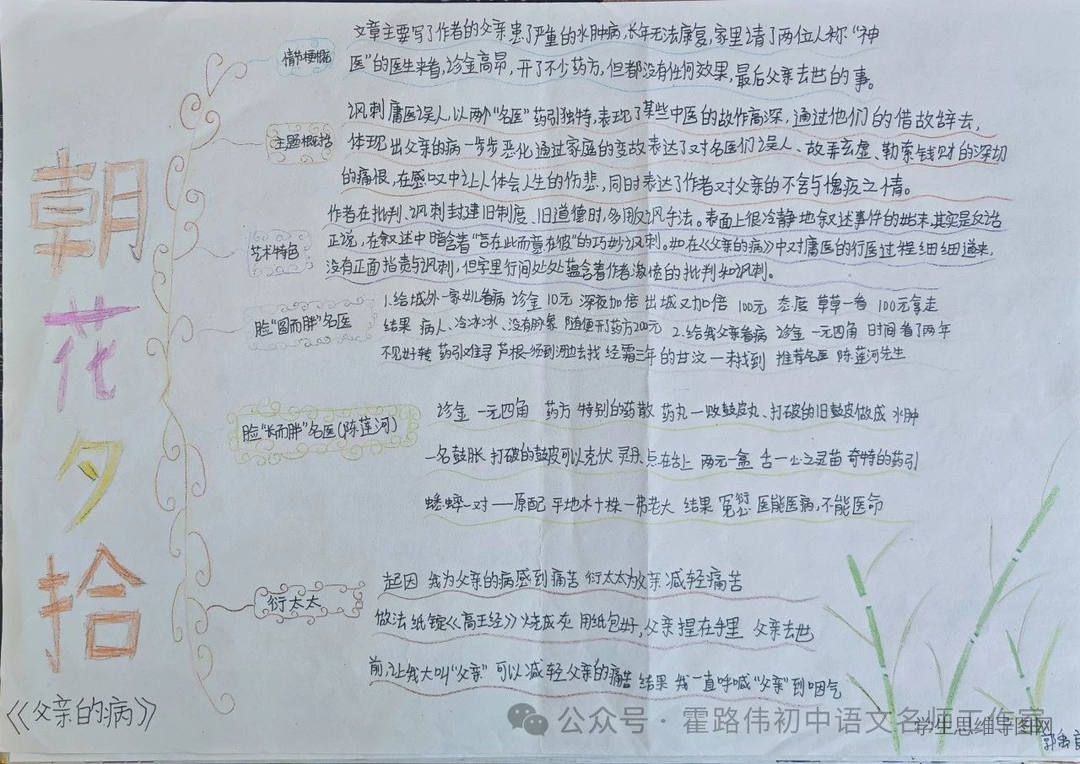 朝花夕拾
《父亲的病》
情节梗概
文章主要写了作者的父亲患了严重的水肿病,长年无法康复,家里请了两位人称“神
医”的医生来看,诊金高昂,开了不少药方,但都没有任何效果,最后父亲去世的事。
主题概括
讽刺庸医误人,以两个“名医”药引独特,表现了某些中医的故作高深,通过他们的借故辞去,
体现出父亲的病一步步恶化通过家庭的变故表达了对名医们误人、故弄玄虚、勒索钱财的深切
的痛恨,在感叹中让人体会人生的伤悲,同时表达了作者对父亲的不舍与愧疚之情。
艺术特色
作者在批判、讽刺封建旧制度、旧道德时,多用反讽手法。表面上很冷静地叙述事件的始末,其实是反话
正说,在叙述中暗含着“言在此而意在彼”的巧妙讽刺。如在《父亲的病》中对庸医的行医过程细细道来,
没有正面指责与讽刺,但字里行间处处蕴含着作者激愤的批判和讽刺。
脸“圆而胖”名医
1.给城外一家女儿看病 诊金10元 深夜加倍 出城又加倍 100元 态度 草草一看 100元拿走
结果 病人、冷冰冰、没有脉象 随便开了药方200元 2.给我父亲看病 诊金 一元四角 时间 看了两年
不见好转 药引难寻 芦根一须到河边去找 经霜三年的甘蔗 一来找到 推荐名医 陈莲河先生
脸“长而胖”名医(陈莲河)
诊金 一元四角 药方 特别的药散 药丸一败鼓皮丸、打破的旧鼓皮做成 水肿
一名鼓胀 打破的鼓皮可以克伏 灵丹 点在舌上 两元一盒 舌一心之灵苗 奇特的药引
蟋蟀一对——原配 平地木十株一弗老大 结果 冤愆 医能医病,不能医命
衍太太
起因 我为父亲的病感到痛苦 衍太太为父亲减轻痛苦
做法 纸锭《高王经》烧成灰 用纸包好,父亲捏在手里 父亲去世
前,让我大叫“父亲” 可以减轻父亲的痛苦 结果 我一直呼喊“父亲”到咽气
公众号·霍路伟初中语文名师工作室
学生思维导图网